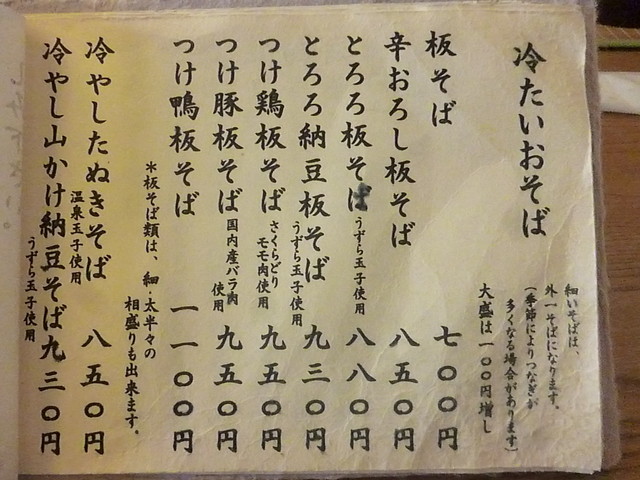 冷たいおそば
細いそばは、
外一そばになります。
(季節によりつなぎが
多くなる場合があります)
大盛は一〇〇円増し
板そば 七〇〇円
辛おろし板そば 八五〇円
とろろ板そば うずら玉子使用 八八〇円
とろろ納豆板そば うずら玉子使用 九三〇円
つけ鶏板そば さくらどりモモ肉使用 九五〇円
つけ豚板そば 国内産バラ肉使用 九五〇円
つけ鴨板そば 一一〇〇円
*板そば類は、細・太半々の
相盛りも出来ます。
冷やしたぬきそば 温泉玉子使用 八五〇円
冷やし山かけ納豆そば うずら玉子使用 九三〇円